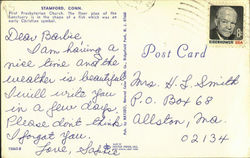 STAMFORD, CONN.
First Presbyterian Church. The floor plan of the
Sanctuary is in the shape of a fish which was an
early Christian symbol.
Dear Barbie
I am having a
nice time and the
weather is beautiful
I will write you
in a few days.
Please don't think
I forgot you.
Love, Sophie
Post Card
EISENHOWER USA
Mrs. H. L. Smith
P.O. Box 68
Allston, Ma.
02134